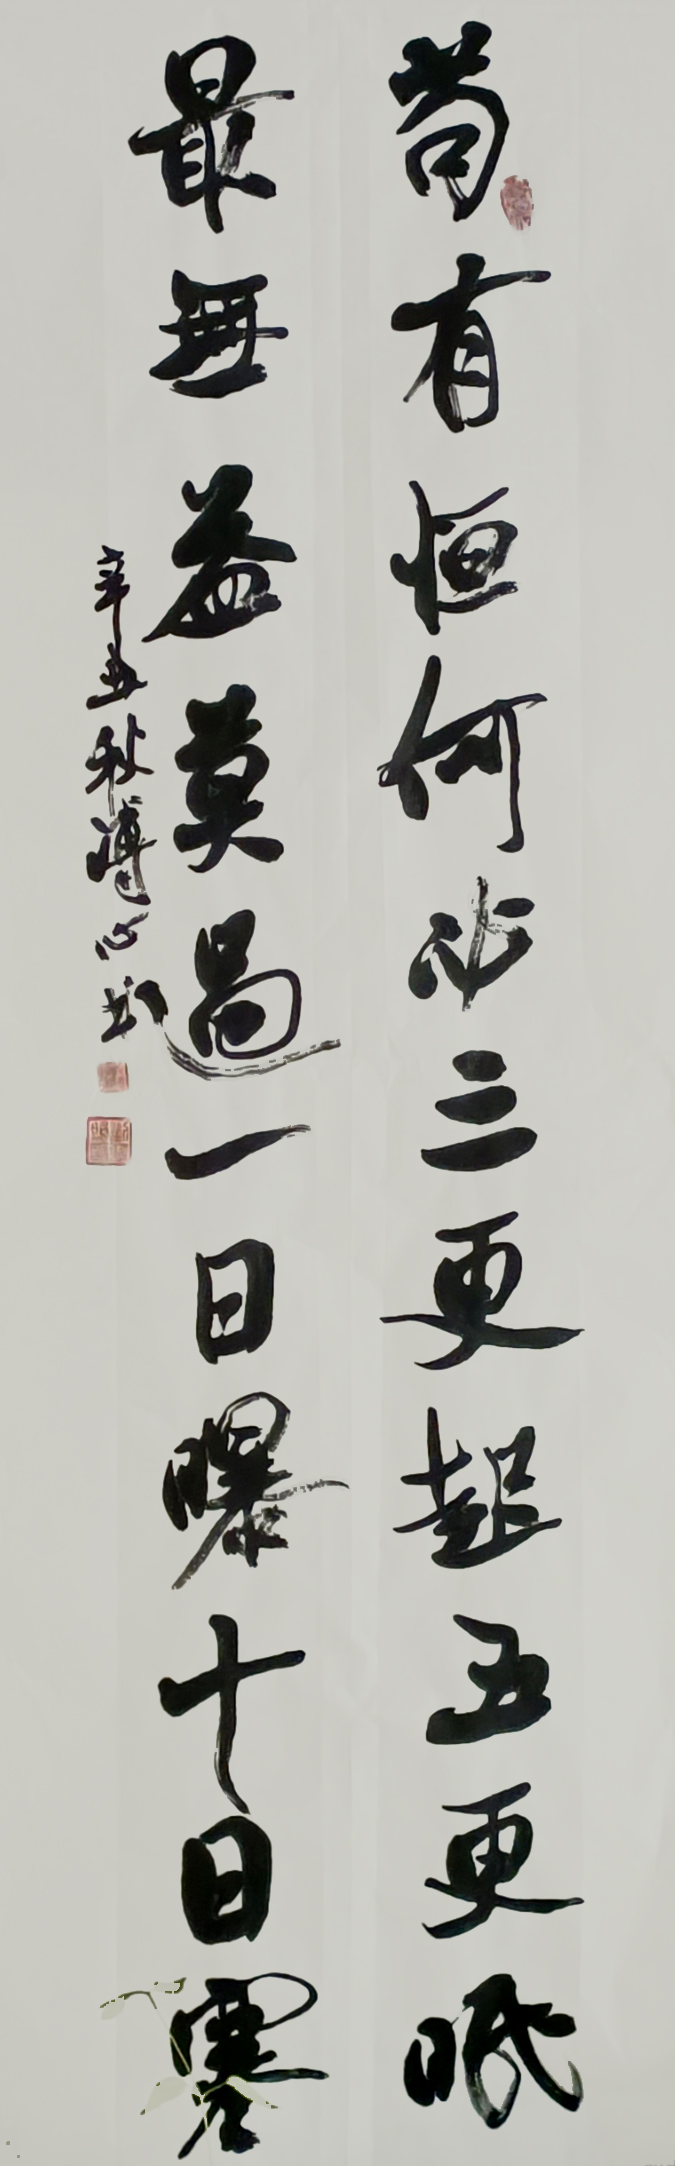 苟有恒何必三更起五更眠
最無益莫過一日曝十日寒
辛丑秋溥心书